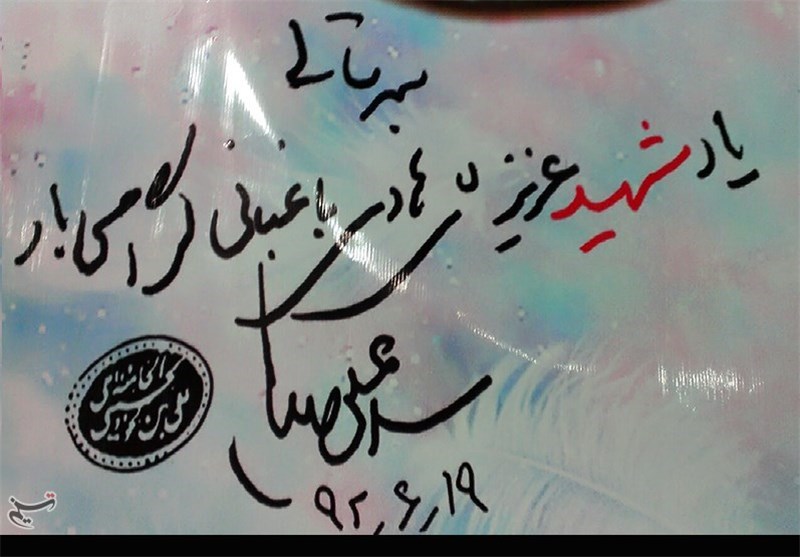 بسمه تعالی
یاد شهید عزیز هادی باغبانی گرامی باد
۹۲٫۶٫۱۹
تسنیم